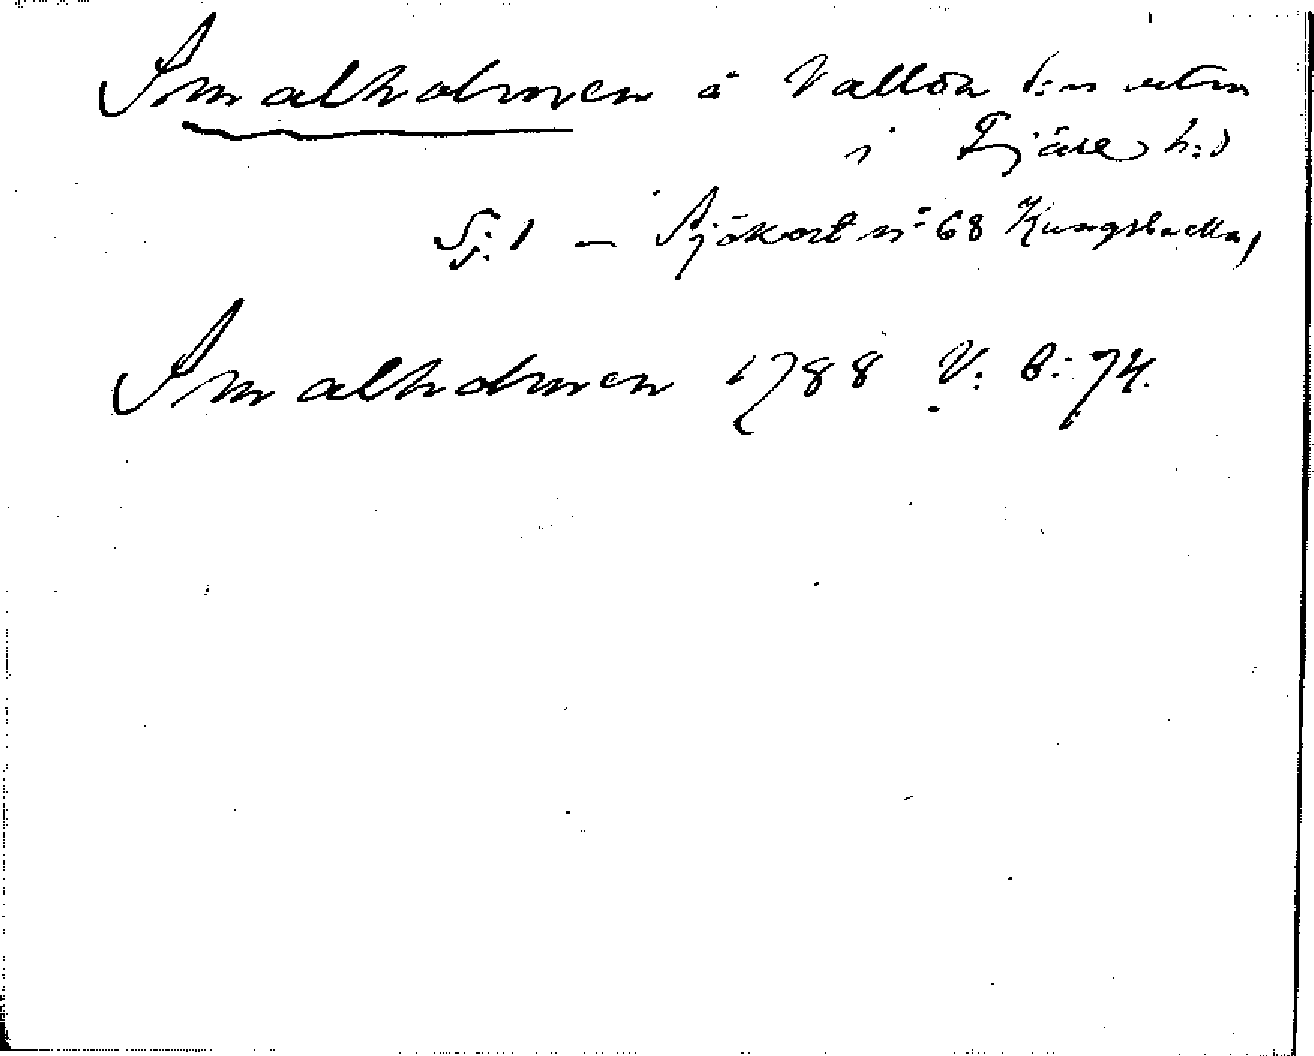 Smalholmen å Vallda
i Fjäre h:d
Sj: 1 — Sjökort nº 68 Kungsbacka,
Smalholmen 1788 V: 6: 74.